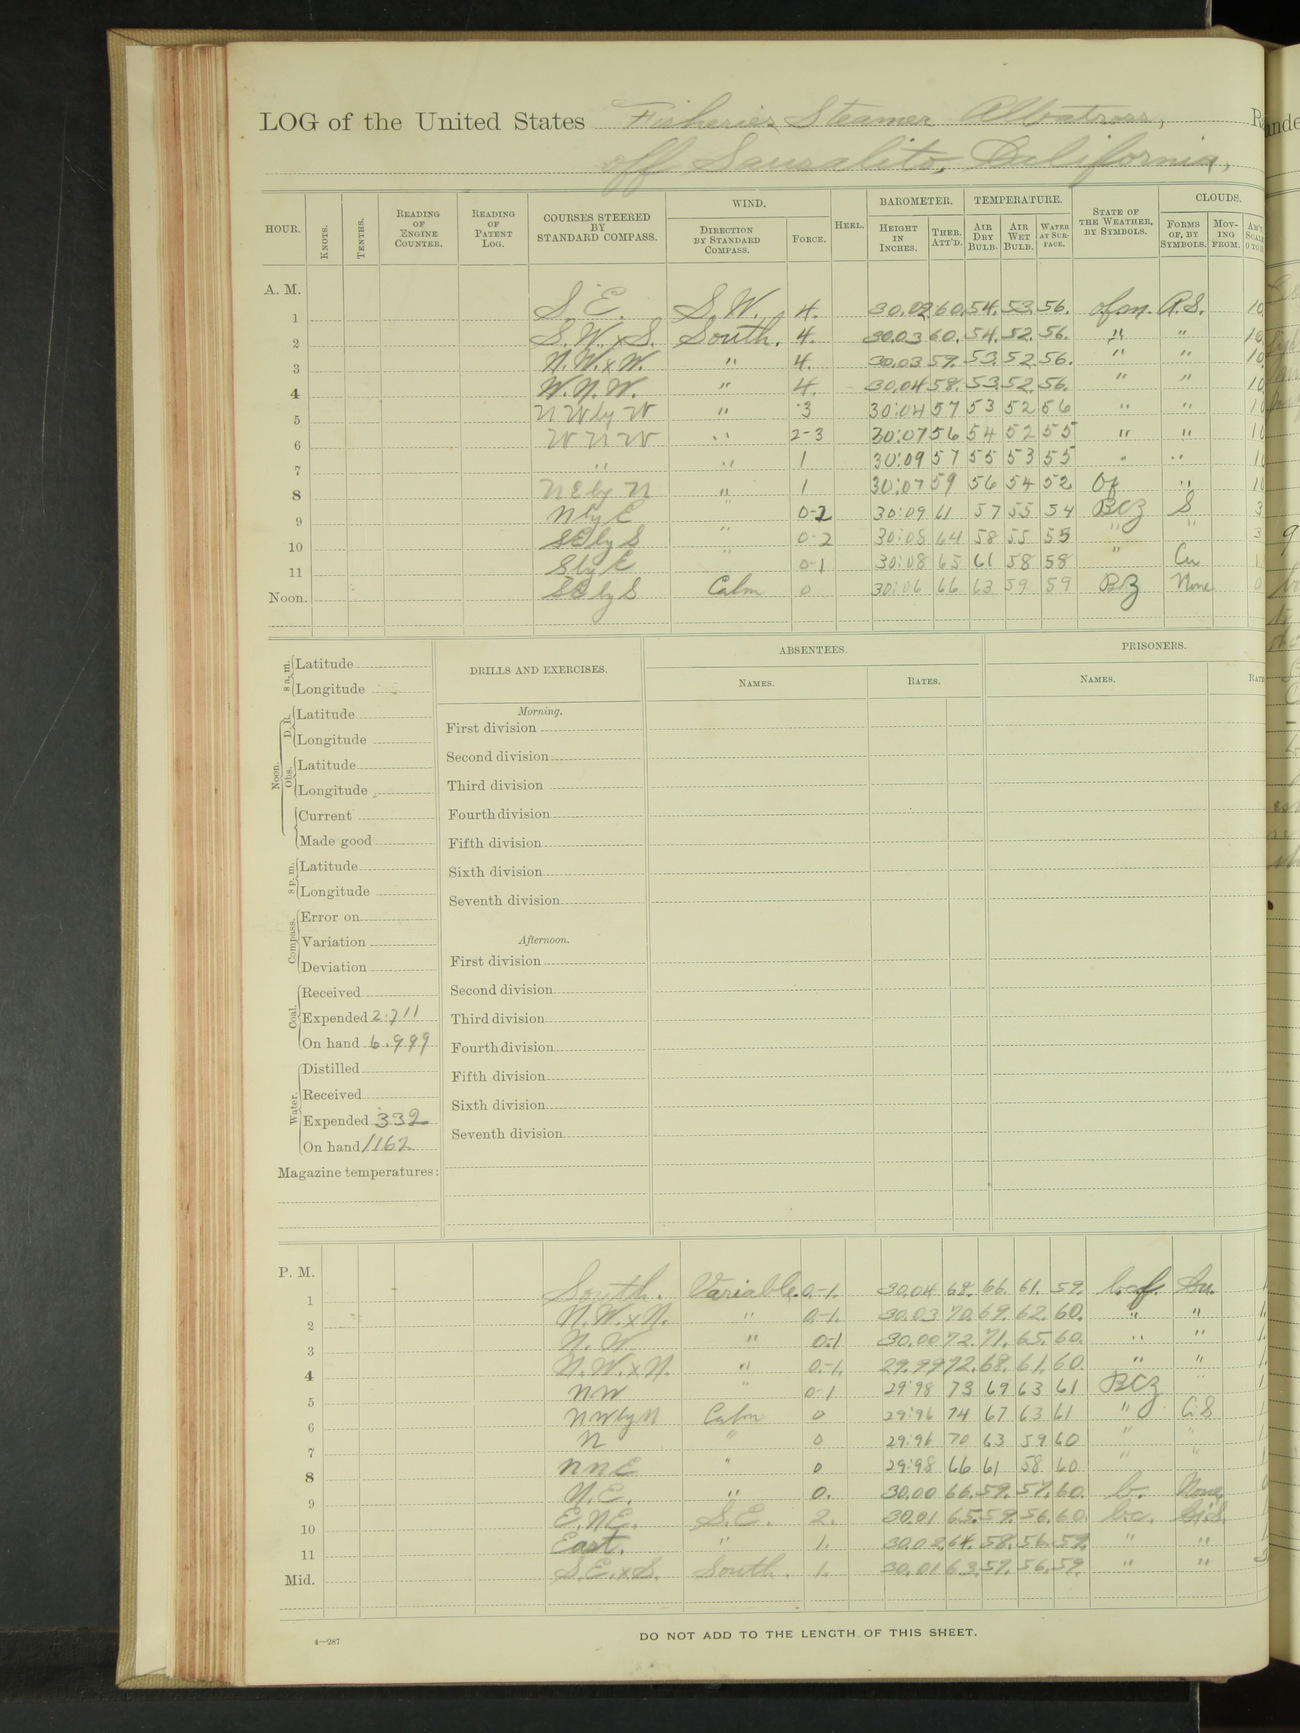 LOG of the United States Fisheries Steamer Albatross,
off Sausalito, California,
HOUR. KNOTS. TENTHS. READING OF ENGINE COUNTER. READING OF PATENT LOG. COURSES STEERED BY STANDARD COMPASS. WIND. DIRECTION BY STANDARD COMPASS. FORCE. HEEL. BAROMETER. HEIGHT IN INCHES. THER. ATT'D. TEMPERATURE. AIR DRY BULB. AIR WET BULB. WATER AT SURFACE. STATE OF THE WEATHER, BY SYMBOLS. CLOUDS. FORMS OF, BY SYMBOLS. MOVING FROM.
A. M.
1 S. E. S. W. 4. 30.02 60. 54. 53. 56. ofm. A.S. 10
2 S. W. x S. South. 4. 30.03 60. 54. 52. 56. " " 10
3 N. W. x W. " 4. 30.03 59. 53. 52. 56. " " 10
4 W. N. W. " 4. 30.04 58. 53. 52. 56. " " 10
5 N W by W " 3 30:04 57 53 52 56 " " 10
6 W N W " 2-3 30:07 56 54 52 55 " " 10
7 " " 1 30:09 57 55 53 55 " " 10
8 N E by N " 1 30:07 59 56 54 52 Of " 10
9 N by E " 0-2 30:09 61 57 55 54 BCZ S 3
10 SE by S " 0-2 30:08 64 58 55 55 " " 3
11 S by E " 0-1 30:08 65 61 58 58 " Cu 1
Noon. SE by S Calm 0 30:06 66 63 59 59 BZ None 0
8 a. m. Latitude
Longitude
Noon. D. R. Latitude
Longitude
Obs. Latitude
Longitude
Current
Made good
8 p. m. Latitude
Longitude
Compass. Error on
Variation
Deviation
Coal. Received
Expended 2.711
On hand 6.999
Water. Distilled
Received
Expended 332
On hand 1162
Magazine temperatures:
DRILLS AND EXERCISES.
Morning.
First division
Second division
Third division
Fourth division
Fifth division
Sixth division
Seventh division
Afternoon.
First division
Second division
Third division
Fourth division
Fifth division
Sixth division
Seventh division
ABSENTEES.
NAMES. RATES.
PRISONERS.
NAMES.
P. M.
1 South. Variable. 0-1. 30.04 68. 66. 61. 59. bcf. Cu. 1
2 N. W. x N. " 0-1. 30.03 70. 69. 62. 60. " " 1.
3 N. W " 0-1 30.00 72. 71. 65. 60. " " 1.
4 N. W. x N. " 0-1. 29.99 72. 68. 61. 60. " " 1.
5 NW " 0-1 29:98 73 69 63 61 BCZ " 1
6 NW by N Calm 0 29:96 74 67 63 61 " C:S 1
7 N " 0 29:96 70 63 59 60 " " 1
8 NNE " 0 29:98 66 61 58 60 " " 1
9 N. E. " 0. 30.00 66. 59. 57. 60. b. None 0
10 E. N E. S. E. 2. 30.01 65. 59. 56. 60. b.c. Ci.S. 1
11 East. " 1. 30.02 64. 58. 56. 59. " " 1.
Mid. S. E. x S. South. 1. 30.01 63. 57. 56. 59. " "
4—287
DO NOT ADD TO THE LENGTH OF THIS SHEET.